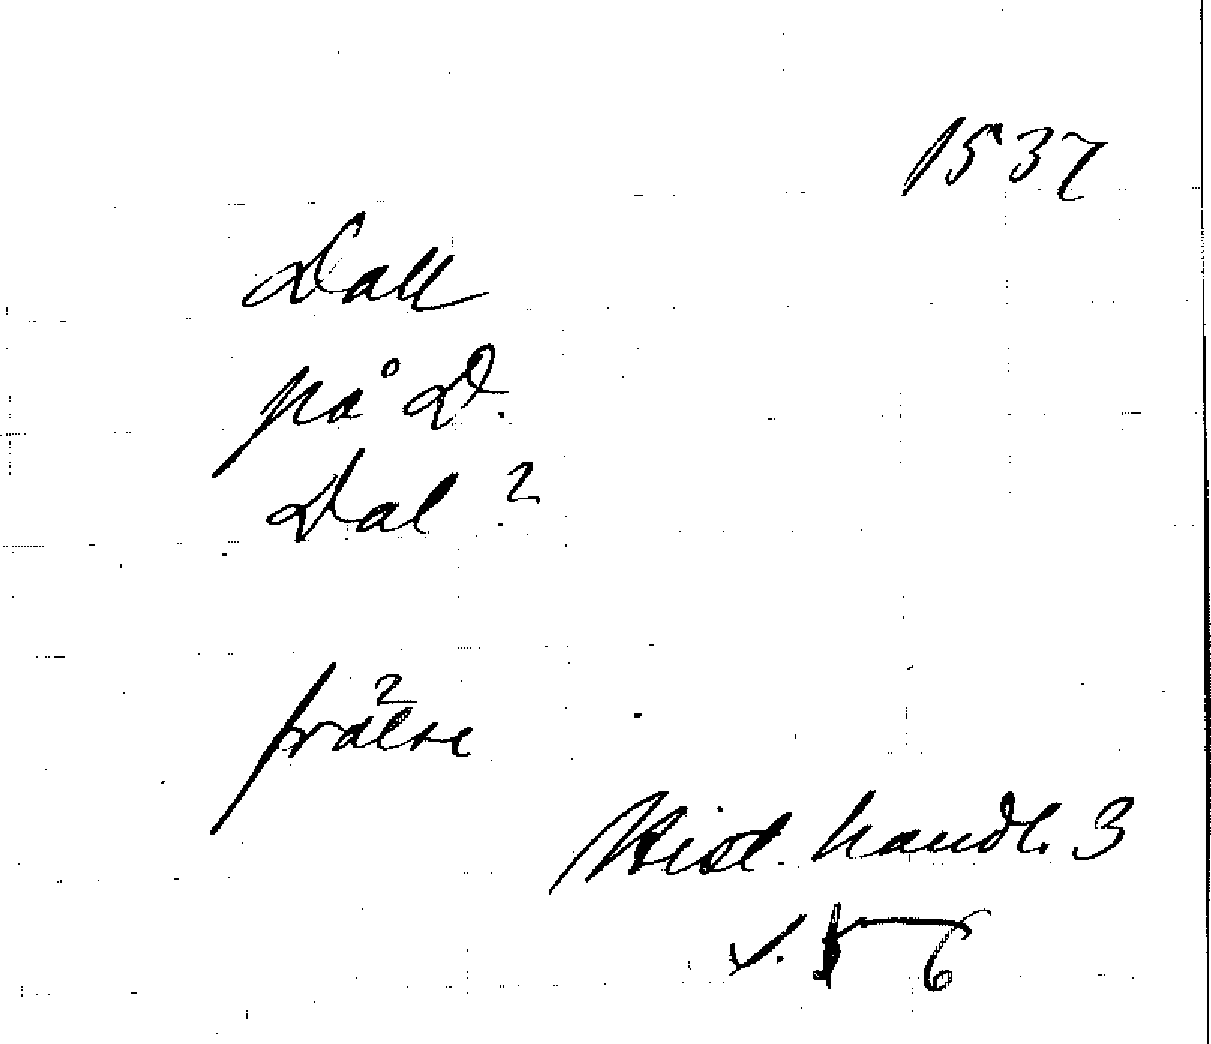 1537
Dall
på D.
Dal ?
frälse
Hist. handl. 3
s. 6